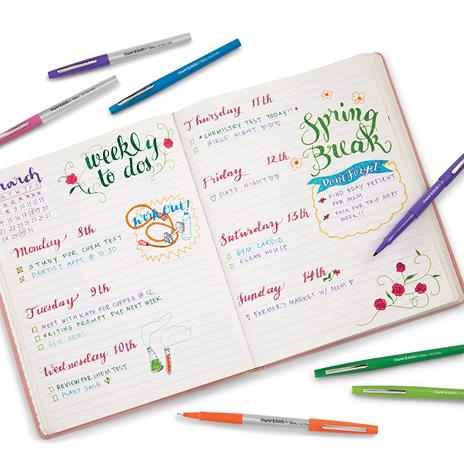 weekly
to dos
march
Monday 8th
STUDY FOR CHEM TEST
DENTIST APPT. @ 10:30
work out!
Tuesday 9th
MEET WITH KATE FOR COFFEE @ 12
WRITING PROMPT DUE NEXT WEEK
GYM ARMS
Wednesday 10th
REVIEW FOR CHEM TEST
PLANT SALE
Thursday 11th
*CHEMISTRY TEST TODAY!!*
GIRLS NIGHT ♡♡♡
Friday 12th
♡ DATE NIGHT ♡♡
Saturday 13th
GYM CARDIO
CLEAN HOUSE
Sunday 14th
♡ FARMER'S MARKET W/ MOM ♡
Spring
Break
Don't Forget
FIND BDAY PRESENT
FOR MOM
PACK FOR TRIP NEXT
WEEK!!
Paper Mate
Paper Mate
Paper Mate
Paper Mate
Paper Mate
Paper Mate